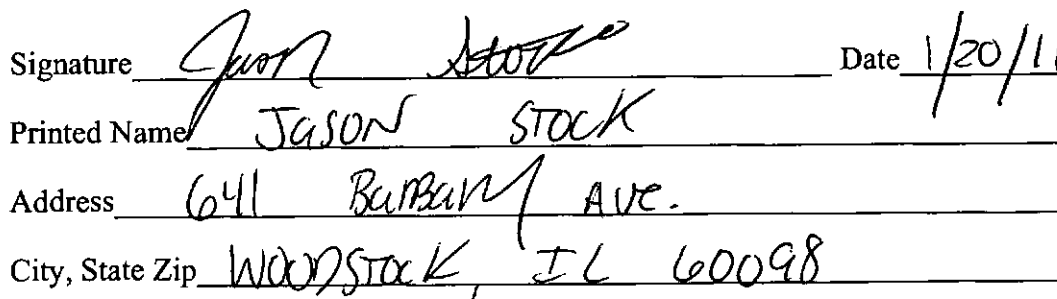 Signature Jason Stock Date 1/20/11
Printed Name JASON STOCK
Address 641 Barbary Ave.
City, State Zip WOODSTOCK, IL 60098